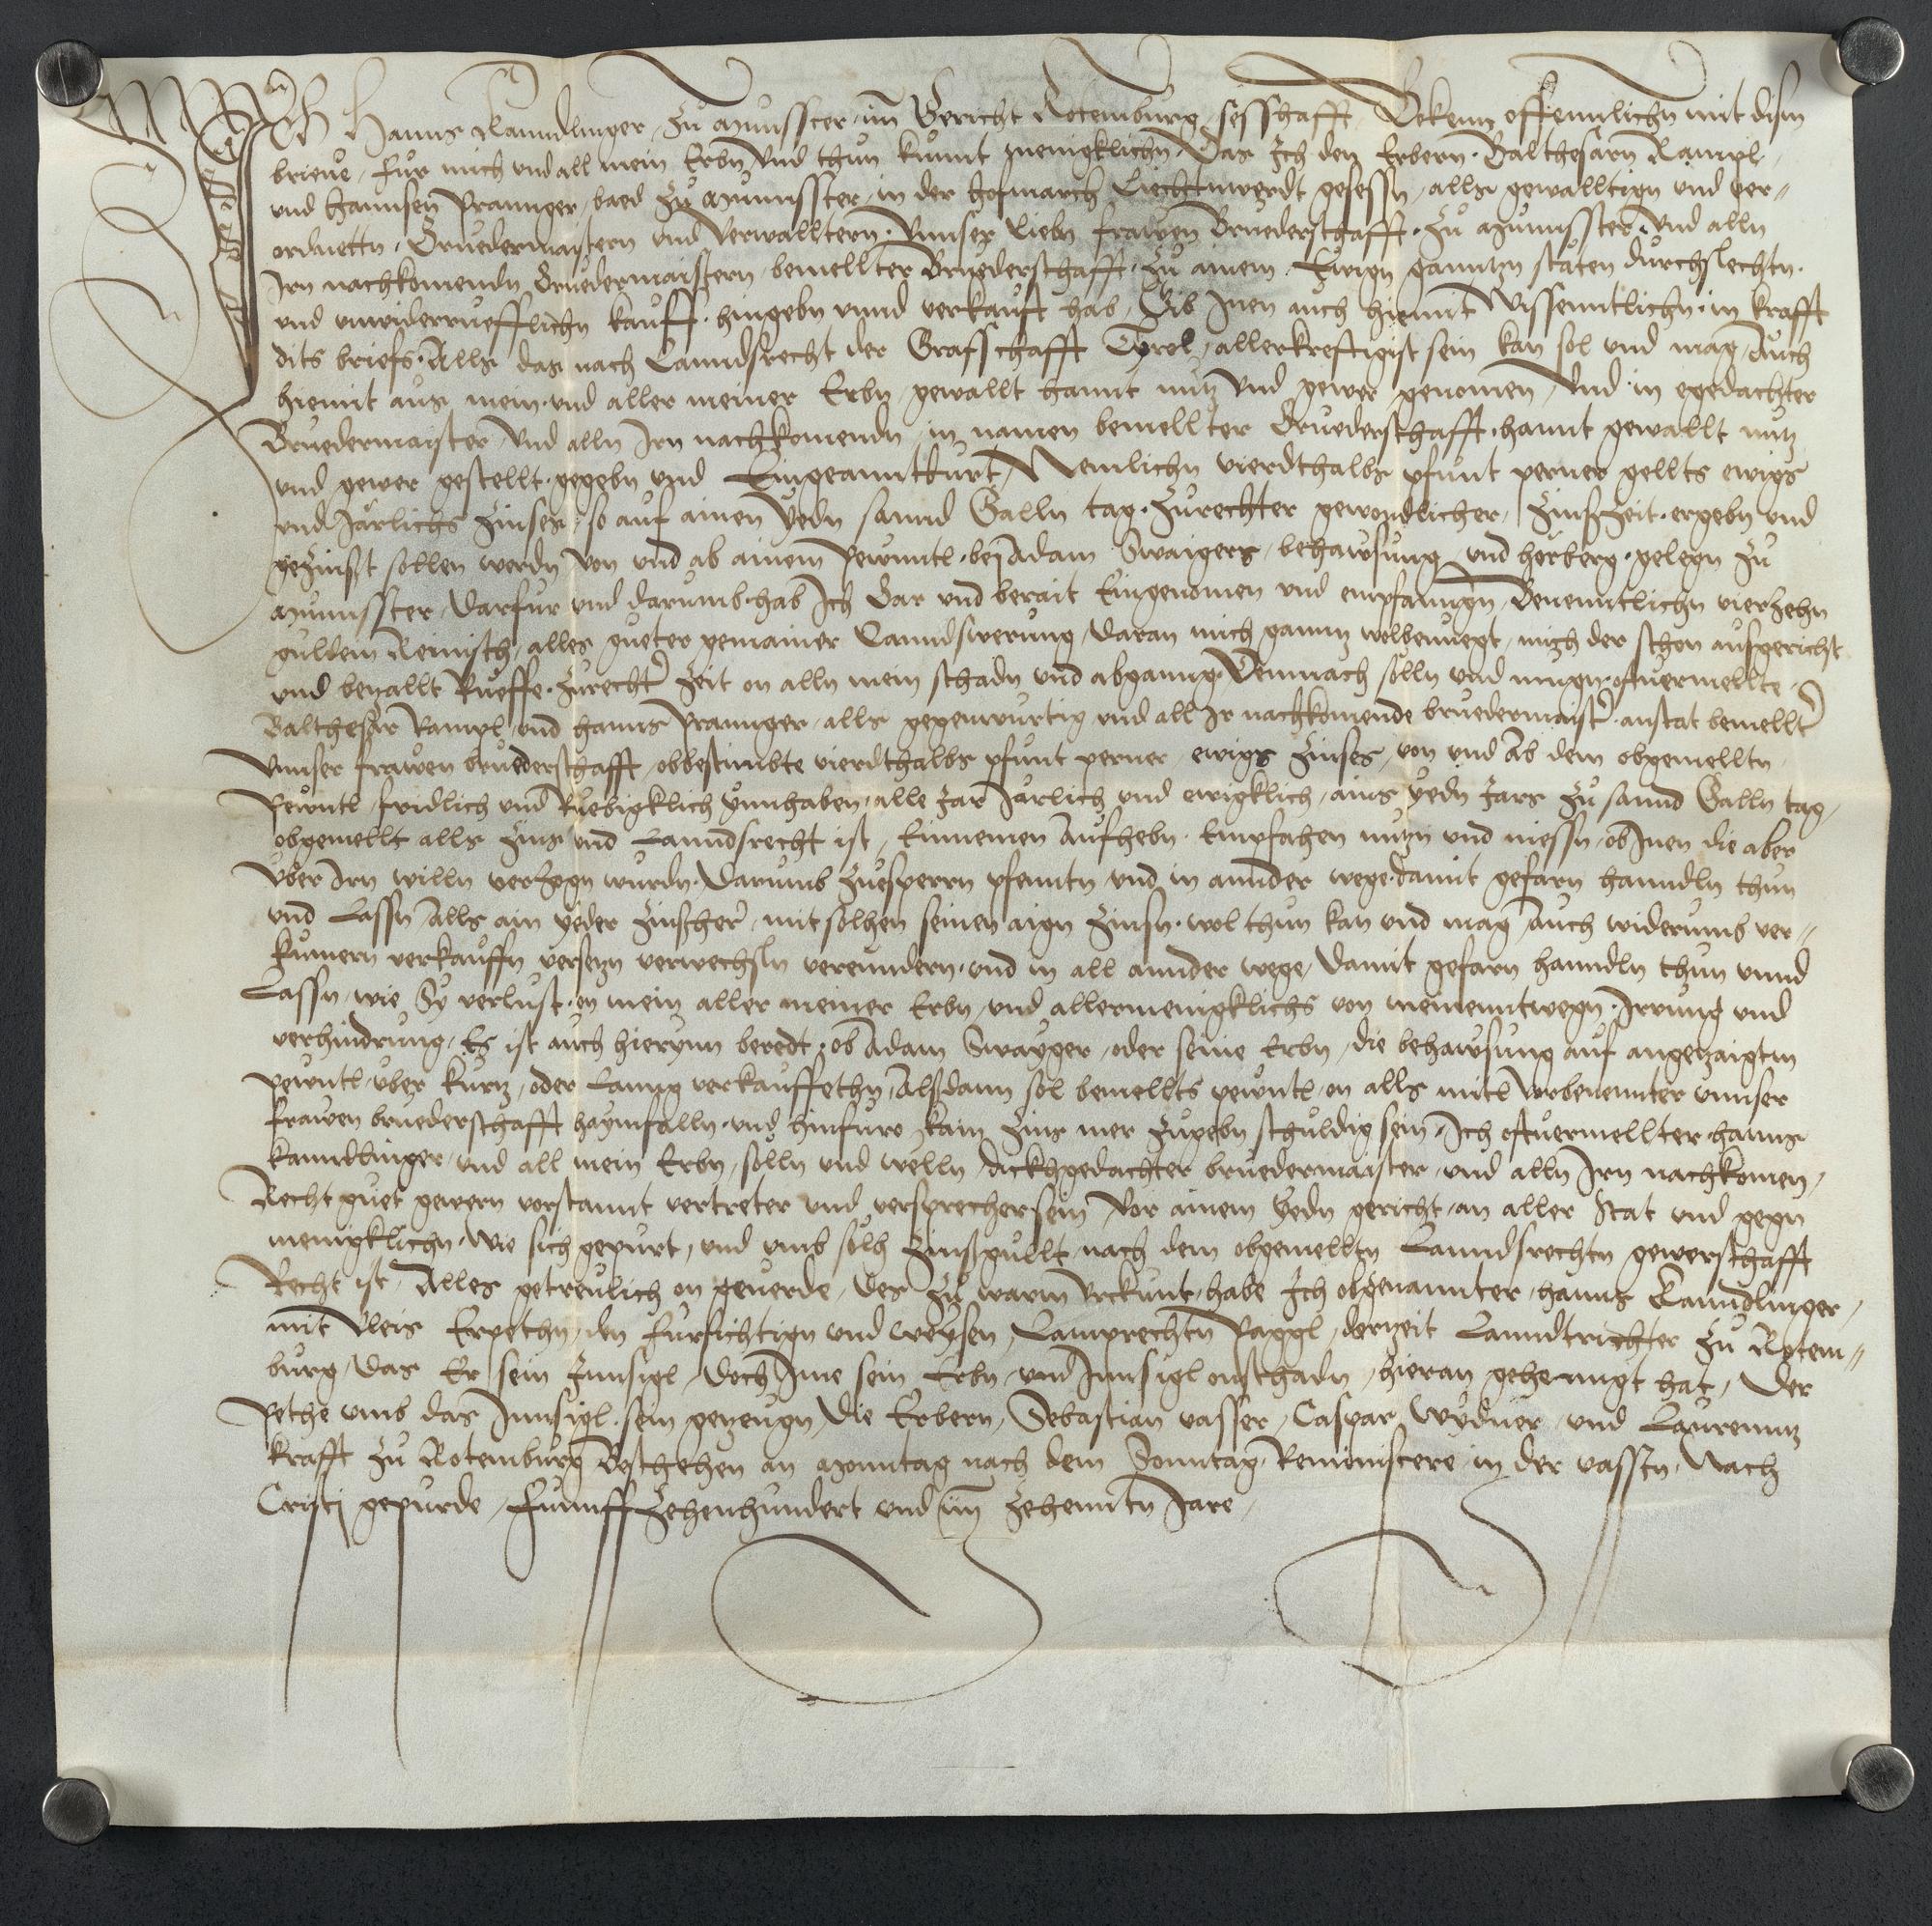 Ich Hanns Kanndlinger, zu Munsster, im Gericht Rotemburg, sesshafft, Bekenn offennlichn mit dism
brieve, fur mich und all mein Erbn, Und thun kunnt menigklichn, Das Ich den Erbern, Balthesarn Rampl,
und Hannsen Prannger, baed zu Munnsster, in der Hofmarch Liechtnwerdt gesessn, alls gewalltign und ver=
ordnettn, Bruedermaistern und Verwalltern, Unnser Liebn frawen Bruederschafft, zu Munnsster, Und alln
Irn nachkomendn Bruedermaistern, bemellter Bruederschafft, zu ainem, Ewign ganntzn stäten durchslechtn,
und unwiderruefflichn kauff, hingebn unnd verkaufft hab, Gib Inen auch hiemit Wissenntlichn, in krafft
dits briefs, Alls das nach Lanndsrecht der Grafschafft Tyrol, allerkreftigist sein kan sol und mag, Auch
hiemit aus mein, und aller meiner Erbn, gewallt hannt nutz Und gewer, genomen, Und in egedachter
Bruedermaister, Und alln Irn nachkomendn, in namen bemellter Bruederschafft, hannt gewallt nutz
und gewer gestellt, gegebn und Eingeanntburt, Nemlichn vierdthalbs pfunt perner gellts ewigs
und Järlichs Zinses, so auf ainen Yedn sannd Galln tag, zu rechter gewondlicher, Zinszeit, ergebn und
gezinst sollen werdn, Von und ab ainem Pewntl, bei Adam Swaigers, behawsung und herberg, gelegn zu
Munnsster, Darfur und darumb, hab Ich Bar und berait Eingenomen und empfanngn, Benenntlichn vierzehn
gulden Reinisch, alles gueter gemainer Lanndswerung, Daran mich ganntz wolbenuegt, mich der schon ausgericht
und betzallt Rueffe, zu rechter Zeit on alln mein schadn und abganng, Demnach sölln und mugn, oftvermellte,
Balthesar Rampl, und Hanns Prannger, alls gegenwurtig und all Ir nachkomende bruedermaister, anstat bemellter
Unnser frawen bruederschafft, obbestimbte vierdthalbs pfunt perner, ewigs Zinses, von und Ab dem obgemelltn,
Pewntl, fridlich und Ruebigklich Ynnhaben, alle Jar Järlich und ewigklich, ains yedn Jars zu sannd Galln tag,
obgemellt alls Zins und Lanndsrecht ist, Einnemen Aufhebn, Empfahen nutzn und niessn, ob Inen die aber
Uber Irn willn verzogn wurdn, Darumb zuesperrn pfenntn, und in annder wege, damit gefarn hanndln thun
und Lassn, Alls ain yeder Zinsherr, mit solhen seinen aign Zinsn, wol thun kan und mag, Auch widerumb ver=
kumern verkauffn versetzn verwechsln verenndern, und in all annder wege, Damit gefarn hanndln thun unnd
Lassn, wie Sy verlust, on mein aller meiner Erbn, und allermenigklichs von meinenntwegn, Irrung und
verhindrung, Es ist auch hierynn beredt, ob Adam Swayger, oder seine Erbn, die behawsung auf angetzaigtm
pewntl, uber kurtz, oder Lanng verkauffethn, Alsdann sol bemellts pewntl, on alls mitl Vorbenennter unnser
frawen bruederschafft haymfalln, und hinfuro kain Zins mer zugebn schuldig sein, Ich oftvermellter, Hanns
Kanndlinger, und all mein Erbn, sölln und welln, dickhgedachter bruedermaister, und alln Irn nachkomen,
Recht guet gewern vorstannt vertreter und versprecher sein, Vor ainem Yedn gericht, an aller Stat und gegn
menigklichn, Wie sich gepurt, und umb solh Zinsgullt, nach dem obgemelltn Lanndsrechtn gewerschafft
Recht ist, Alles getreulich on geverde, Des zu warm Urkunt, habe Ich obgenannter, Hanns Kanndlinger,
mit Vleis Erpethn, den fursichtign und weysen, Lamprechtn Paggl, derzeit Lanndtrichter zu Rotem=
burg, das Er sein Innsigl, doch Ime sein Erbn, und Innsigl on schadn, hieran gehenngt hat, Der
Pethe umb das Innsigl, sein getzeugn, die Erbern, Sebastian Vasser, Caspar Wydner, und Laurenntz
Krafft zu Rotemburg, Beschehen an Monntag nach dem Sonntag, Reminiscere, in der Vasstn, Nach
Cristi gepurde, Funnffzehenhundert und im zehenntn Jare,